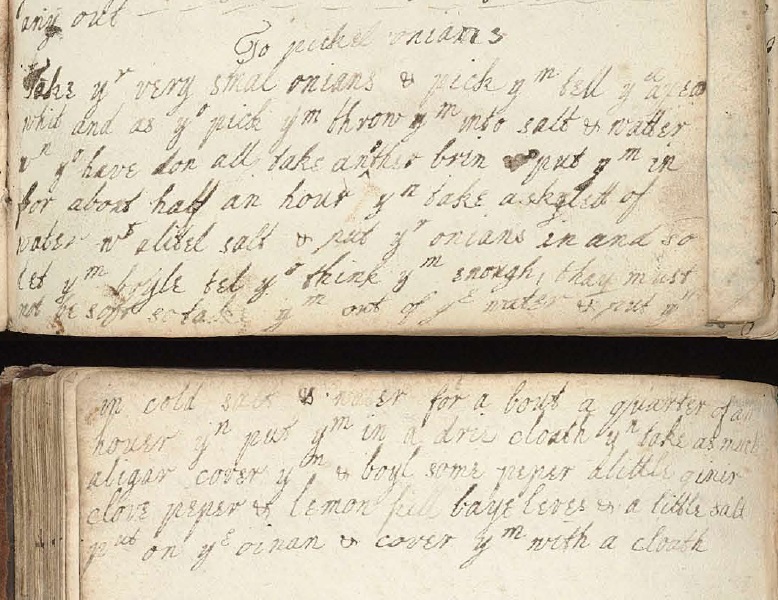 any out
To pickel onians
Take yr very smal onians & pick ym tell ya
whit and as yo pick ym throw ym into salt & watter
wn yo have don all take another brin & put ym in
for about half an hour yn take a skylett of
water wt alitel salt & put yr onians in and so
let ym boyle tel yo think ym enough, thay must
not be soft so take ym out of ye water & put ym
in cold salt & water for a bout a quarter of an
houer yn put ym in a drie cloath yn take as much
aligar cover ym & boyl some peper alittle giner
clove peper & lemon pill baye leves & a little salt
put on ye oinan & cover ym with a cloath